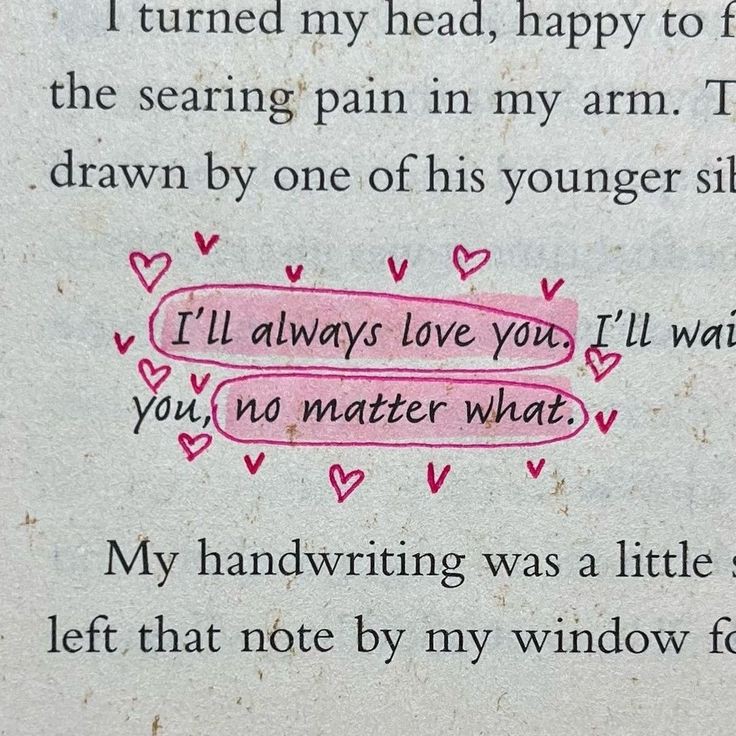 I turned my head, happy to
the searing pain in my arm.
drawn by one of his younger
I'll always love you. I'll
you, no matter what.
My handwriting was a little
left that note by my window